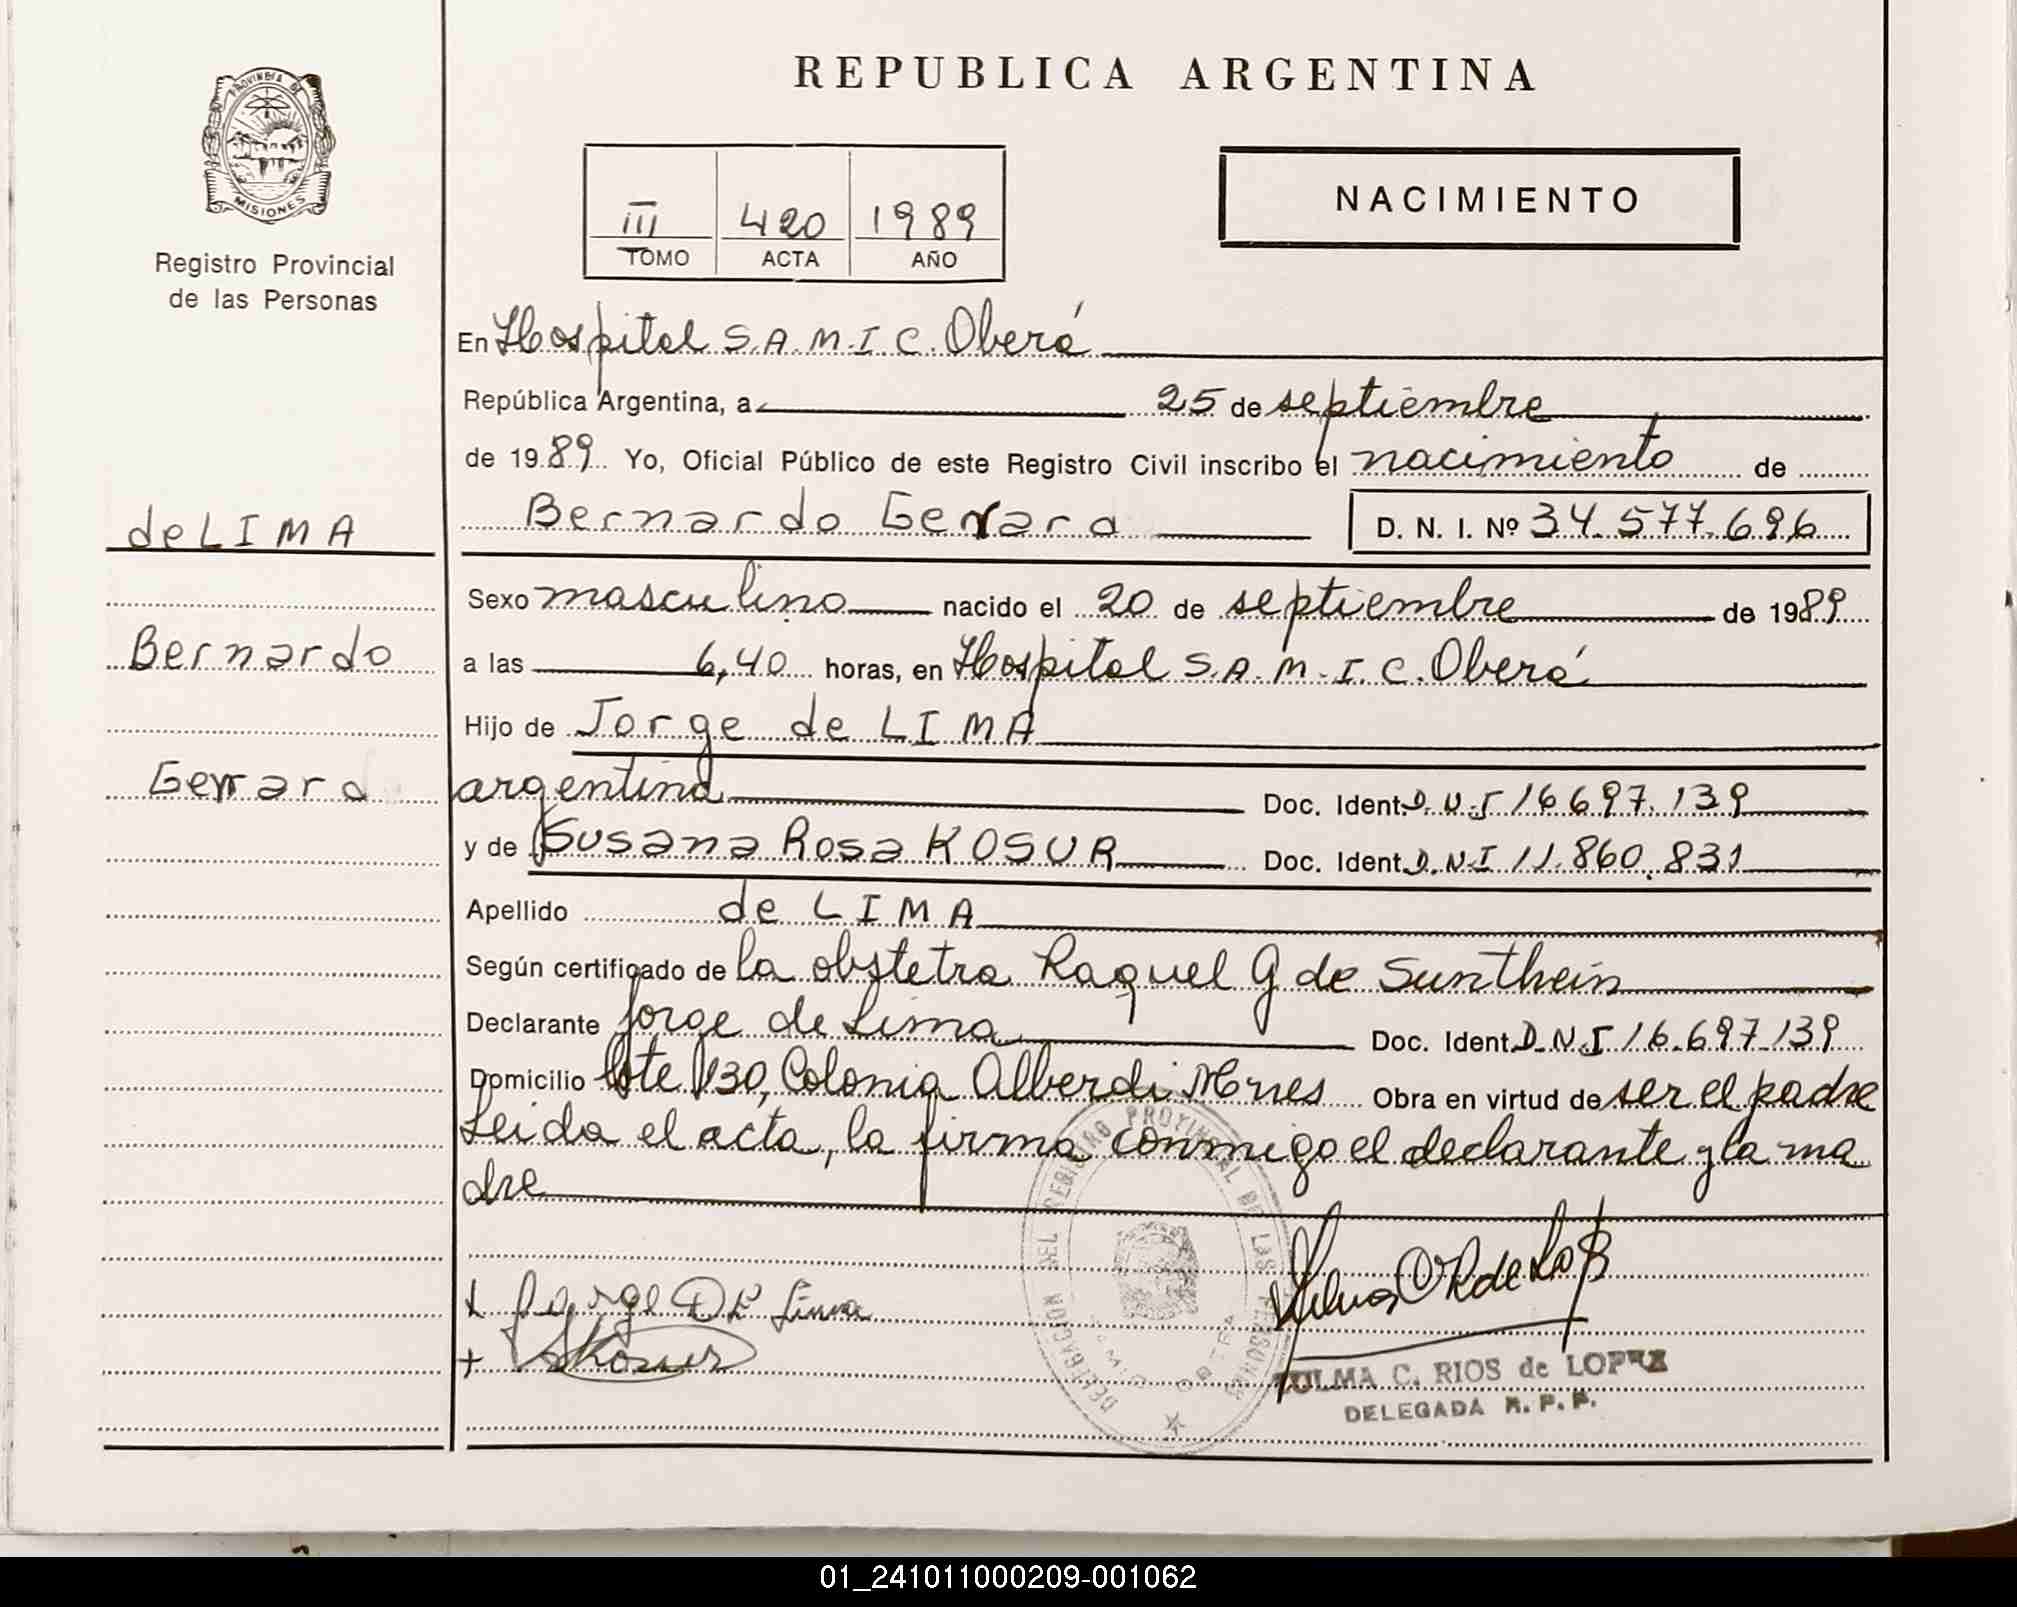 REPUBLICA ARGENTINA
PROVINCIA DE MISIONES
Registro Provincial
de las Personas
III 420 1989
TOMO ACTA AÑO
NACIMIENTO
En Hospital S.A.M.I.C. Oberá
República Argentina, a 25 de septiembre
de 1989 Yo, Oficial Público de este Registro Civil inscribo el nacimiento de
de LIMA
Bernardo Gerard D. N. I. Nº 34.577.696
Sexo masculino nacido el 20 de septiembre de 1989
Bernardo
a las 6,40 horas, en Hospital S.A.M.I.C. Oberá
Hijo de Jorge de LIMA
Gerard
argentina Doc. Ident. D.N.I 16.697.139
y de Susana Rosa KOSUR Doc. Ident. D.N.I 11.860.831
Apellido de LIMA
Según certificado de la obstetra Raquel G de Sunthein
Declarante Jorge de Lima Doc. Ident. D.N.I 16.697.139
Domicilio lote 130, Colonia Alberdi Mnes Obra en virtud de ser el padre
Leida el acta, la firma conmigo el declarante y la ma
dre
DELEGACION DEL REGISTRO PROVINCIAL DE LAS PERSONAS
Jorge De Lima
Kosur
ZULMA C. RIOS de LOPEZ
DELEGADA R. P. P.
01_241011000209-001062